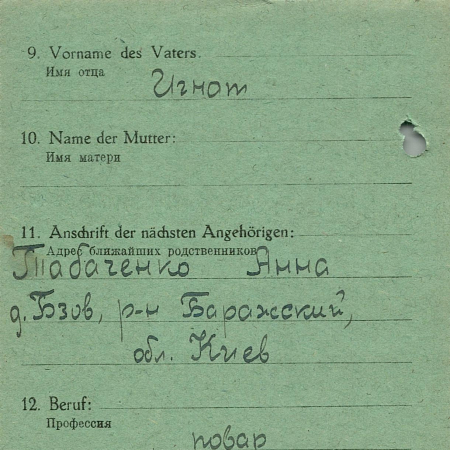 9. Vorname des Vaters.
Имя отца
Игнат
10. Name der Mutter:
Имя матери
11. Anschrift der nächsten Angehörigen:
Адрес ближайших родственников
Табаченко Анна
д. Бзов, р-н Баражский,
обл. Киев
12. Beruf:
Профессия
повар